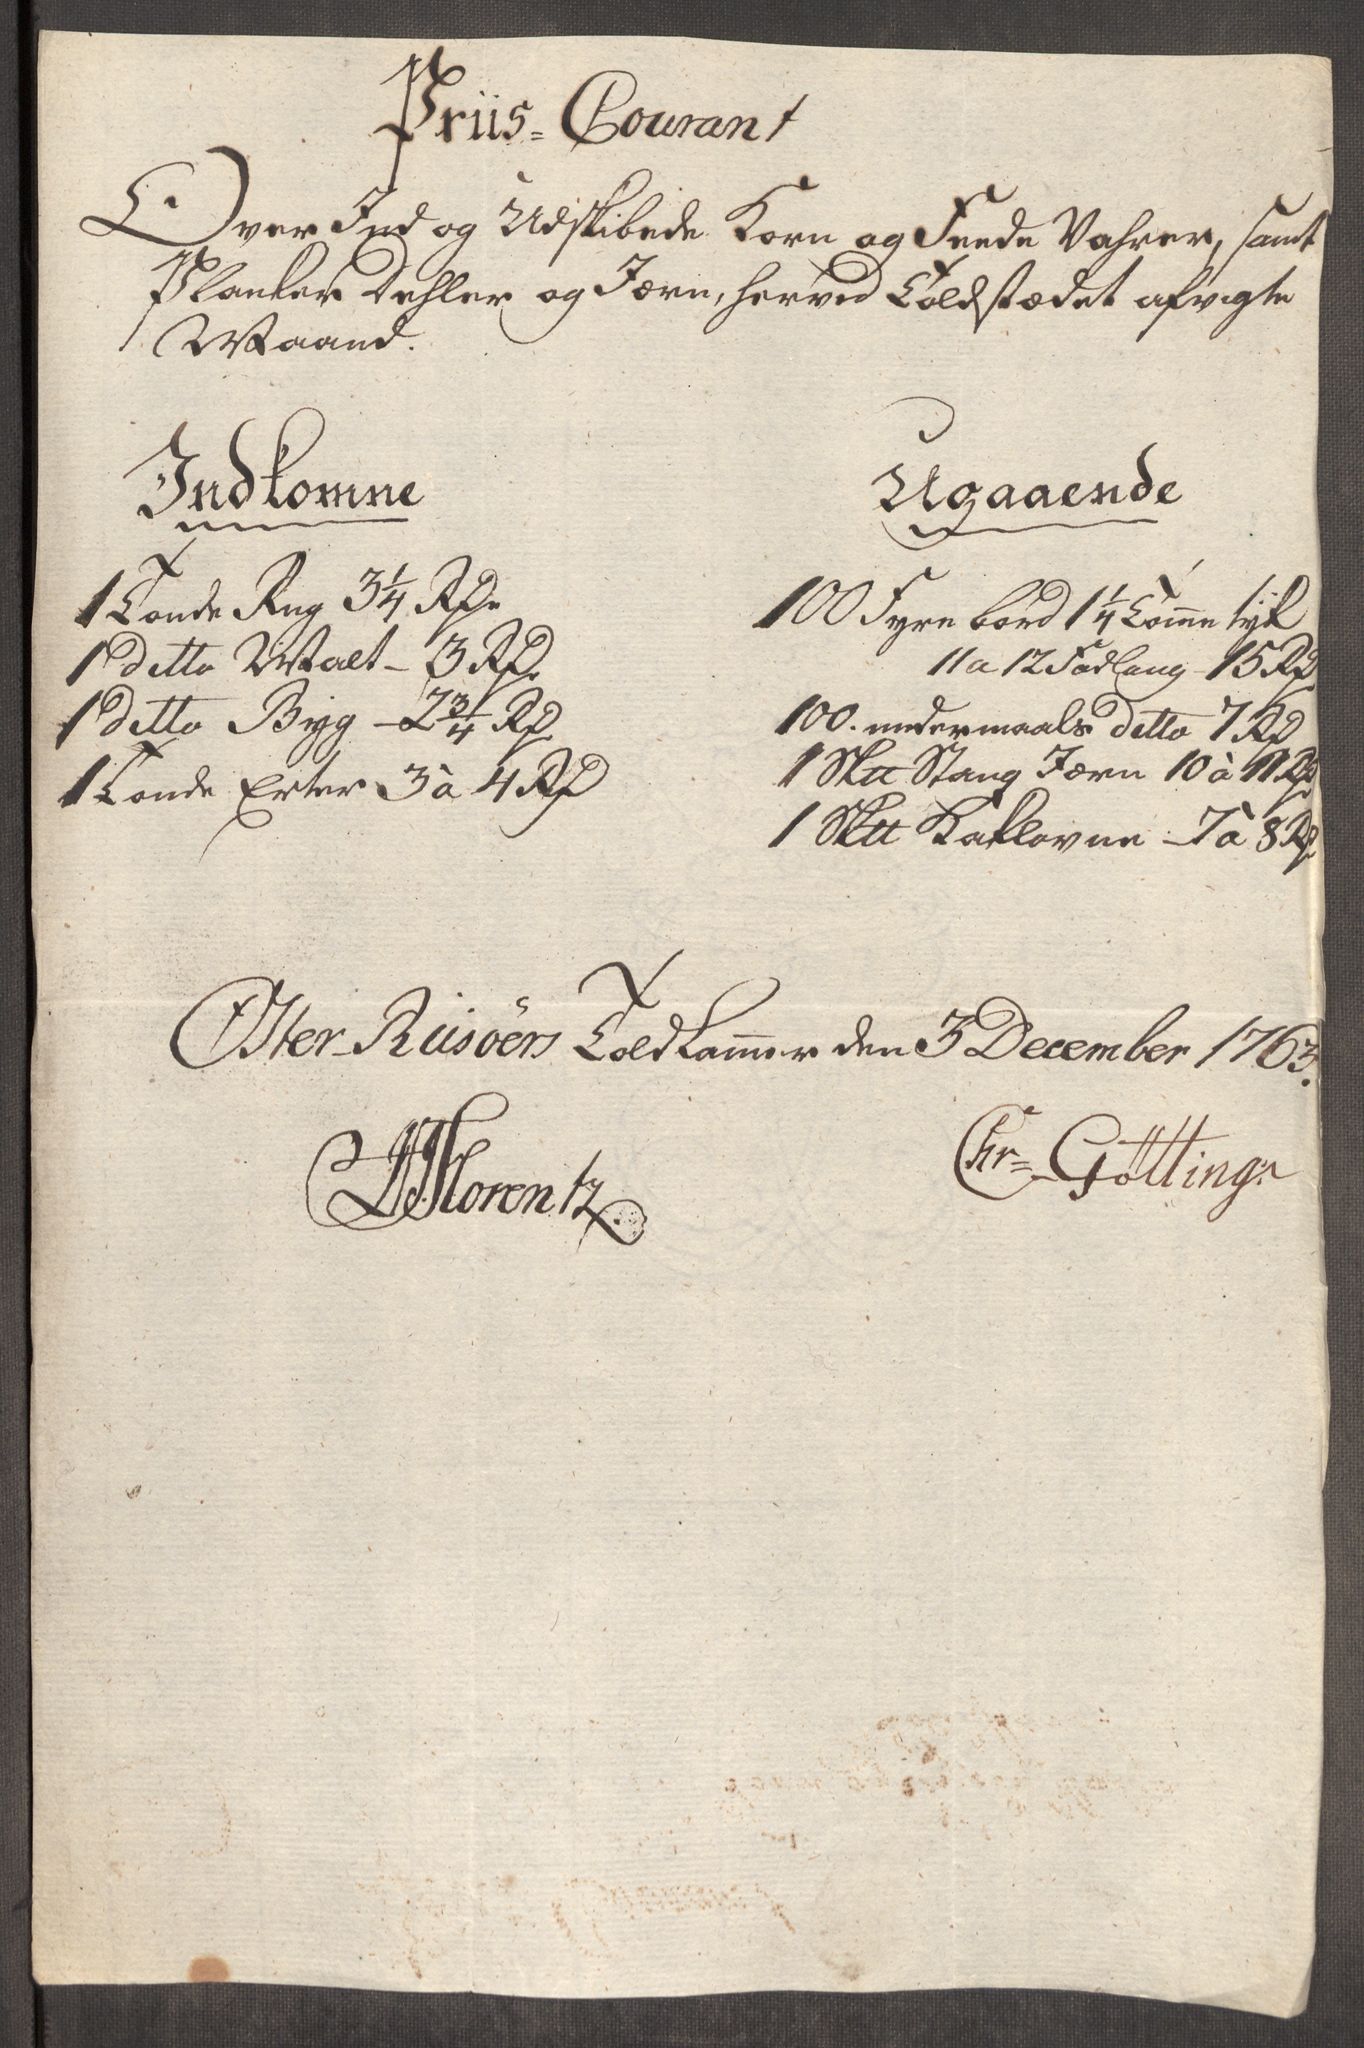 Priis=Courant
Over Ind og Udskibede Korn og Feede Vahrer, samt
Planker Dehler og Jærn, herved Toldstædet afvigte
Maaned.
Indkomne
1 Tonde Rug 3 1/4 Rd.
1 ditto Malt - 3 Rd.
1 ditto Byg - 2 3/4 Rd
1 Tonde Erter 3 à 4 Rd
Ugaaende
100 Fyre bord 1 1/4 Tomme tyk
11 a 12 Fod lang - 15 Rd
100. undermaals ditto 7 Rd
1 Sktt Stang Jærn 10 à 11 Rd
1 Sktt Kaklovne - 7 à 8 Rd
Oster-Riisöers Toldkammer den 3 December 1763.
Lorentz
Chr= Götting